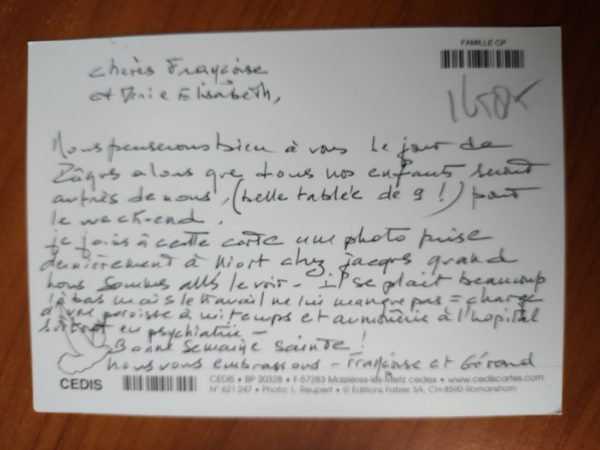 FAMILLE CP
chères Françoise
et Marie Elisabeth,
Nous penserons bien à vous le jour de
Pâques alors que tous nos enfants seront
autres de nous, (belle tablée de 9 !) pour
le week-end.
je joins à cette carte une photo prise
dernièrement à Niort chez jacques quand
nous sommes allés le voir - il se plait beaucoup
là bas mais le travail ne lui manque pas = charge
d'une paroisse à mi temps et aumônerie à l'hopital
surtout en psychiatrie -
Bonne Semaine Sainte !
nous vous embrassons - Françoise et Gérard
CEDIS
CEDIS • BP 20328 • F-57283 Maizières-lès-Metz cedex • www.cediscartes.com
N° 621.247 • Photo: L. Reupert • © Editions Fatzer SA, CH-8590 Romanshorn